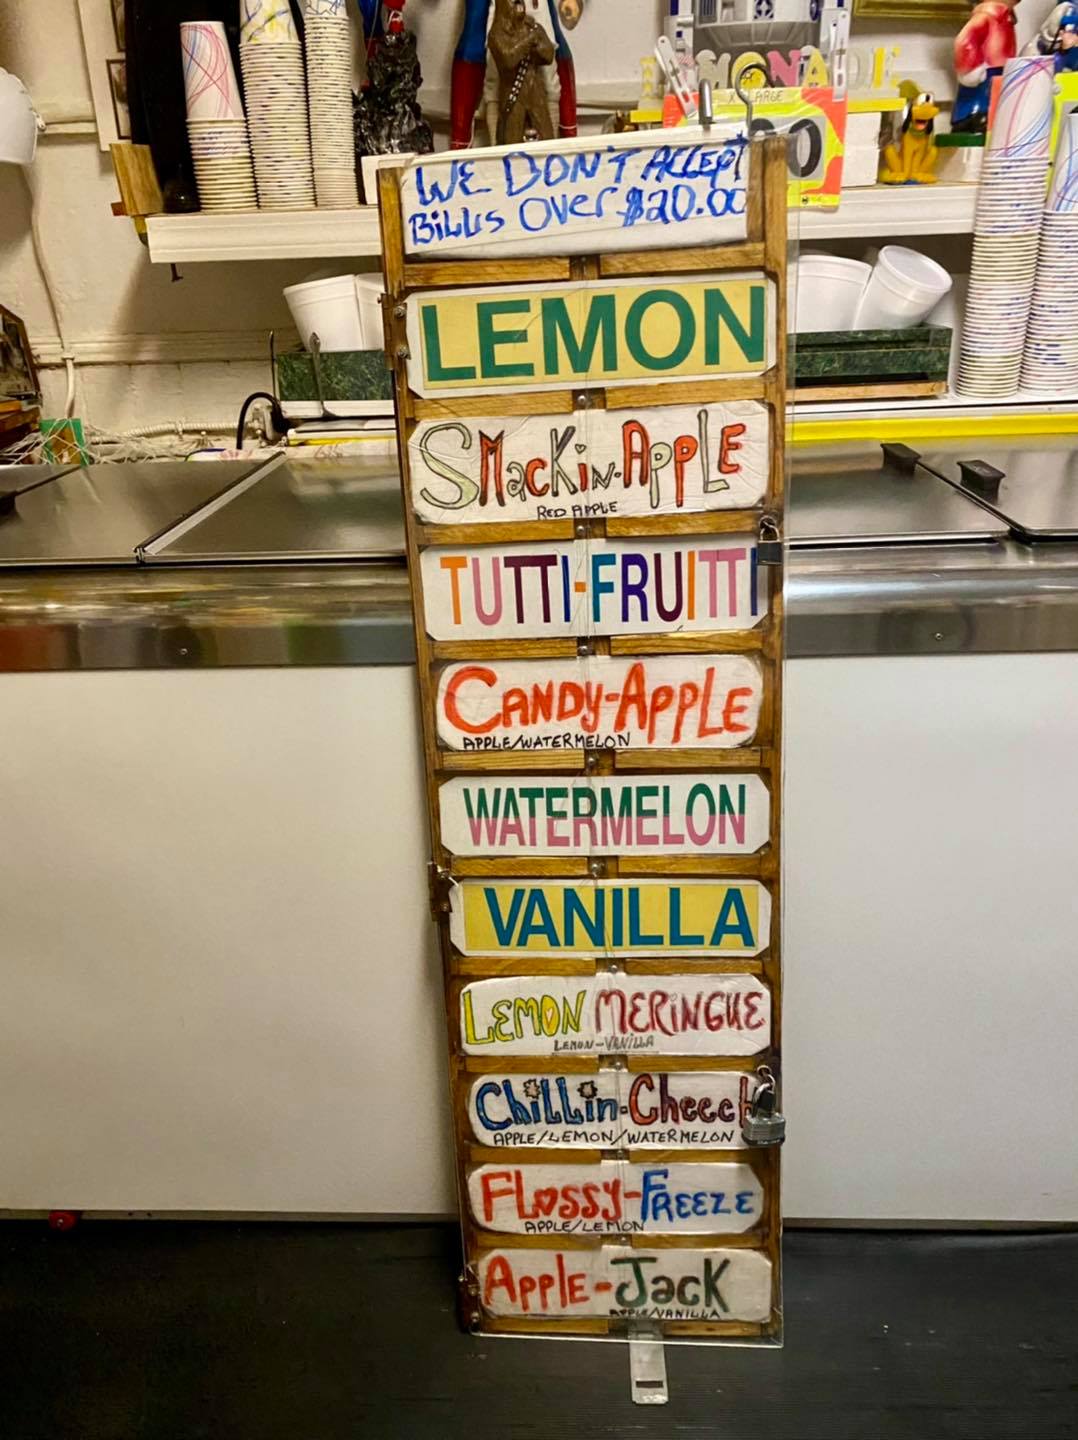 MONADE
X-LARGE
WE DON'T ACCEPT
BILLS OVER $20.00
LEMON
SMACKIN-APPLE
RED APPLE
TUTTI-FRUITTI
CANDY-APPLE
APPLE/WATERMELON
WATERMELON
VANILLA
LEMON MERINGUE
LEMON-VANILLA
CHiLLin-Cheech
APPLE/LEMON/WATERMELON
FLOSSY-FREEZE
APPLE/LEMON
APPLE-JACK
APPLE/VANILLA